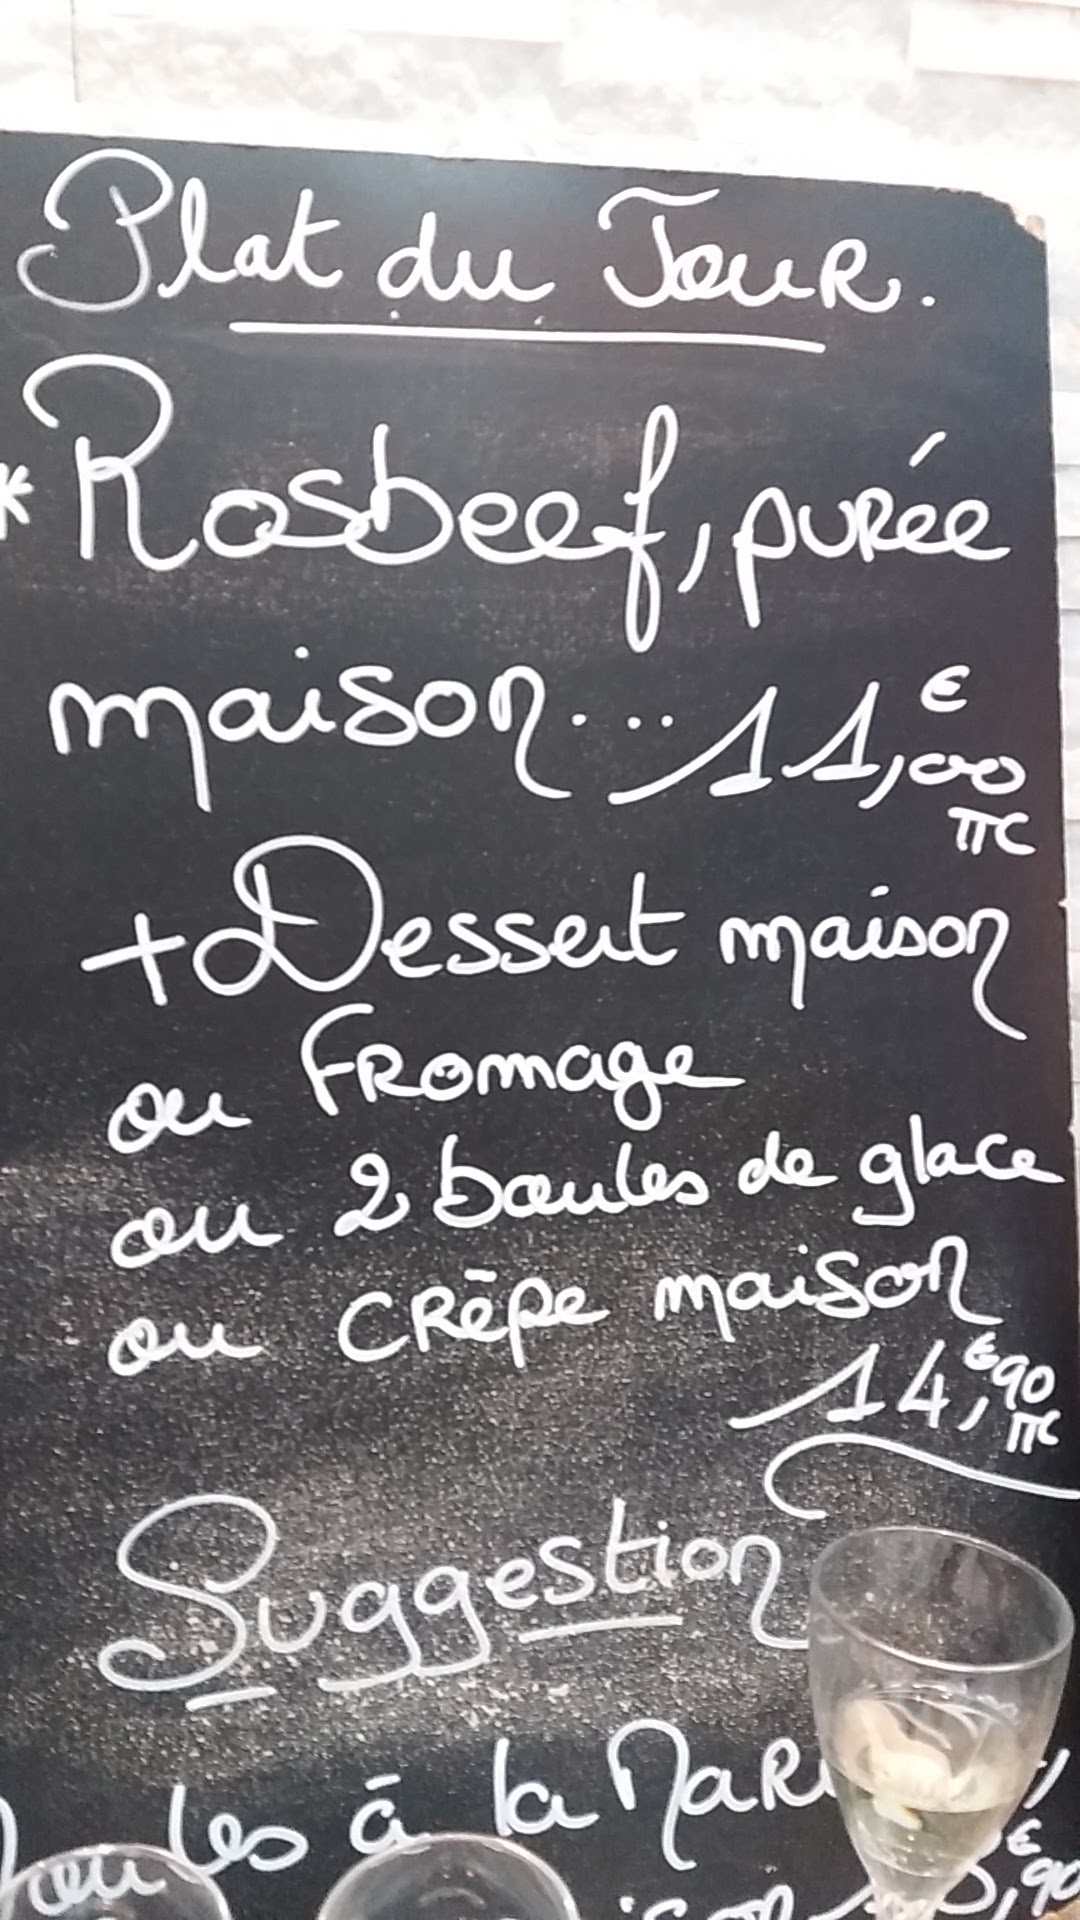 Plat du Jour.
* Rosbeef, purée
maison.... 11,00 €
TTC
+ Dessert maison
ou Fromage
ou 2 boules de glace
ou crêpe maison
14,€90
TTC
Suggestion
à la
€
,90